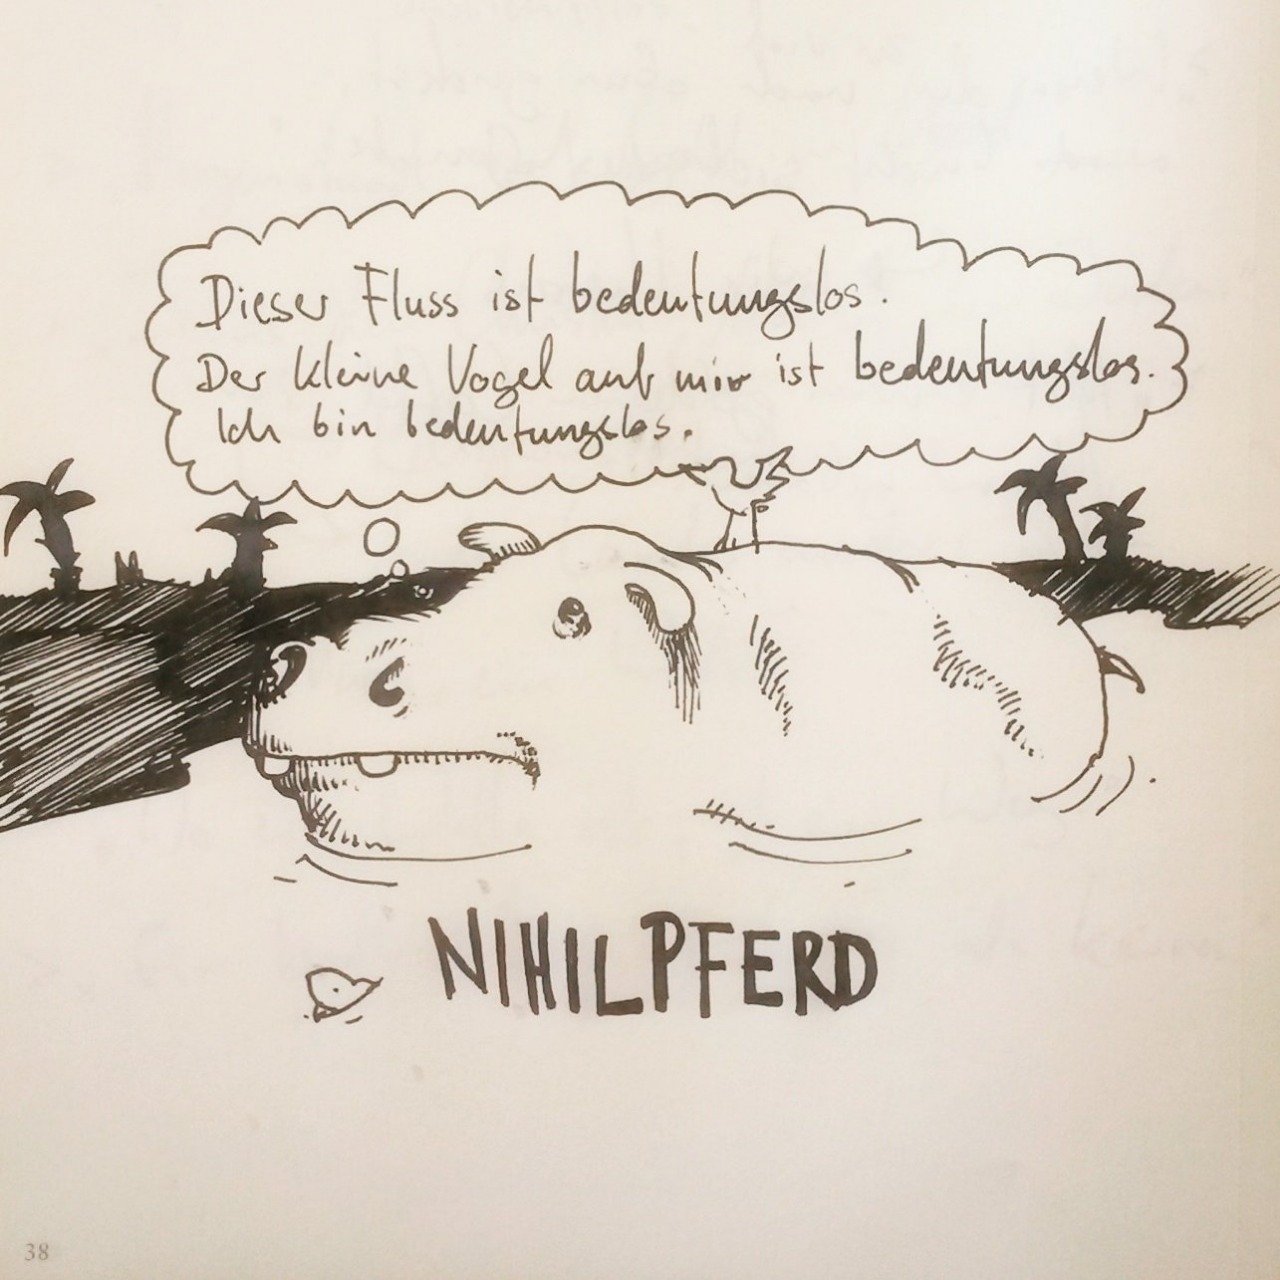 Dieser Fluss ist bedeutungslos.
Der kleine Vogel auf mir ist bedeutungslos.
Ich bin bedeutungslos.
NIHILPFERD
38